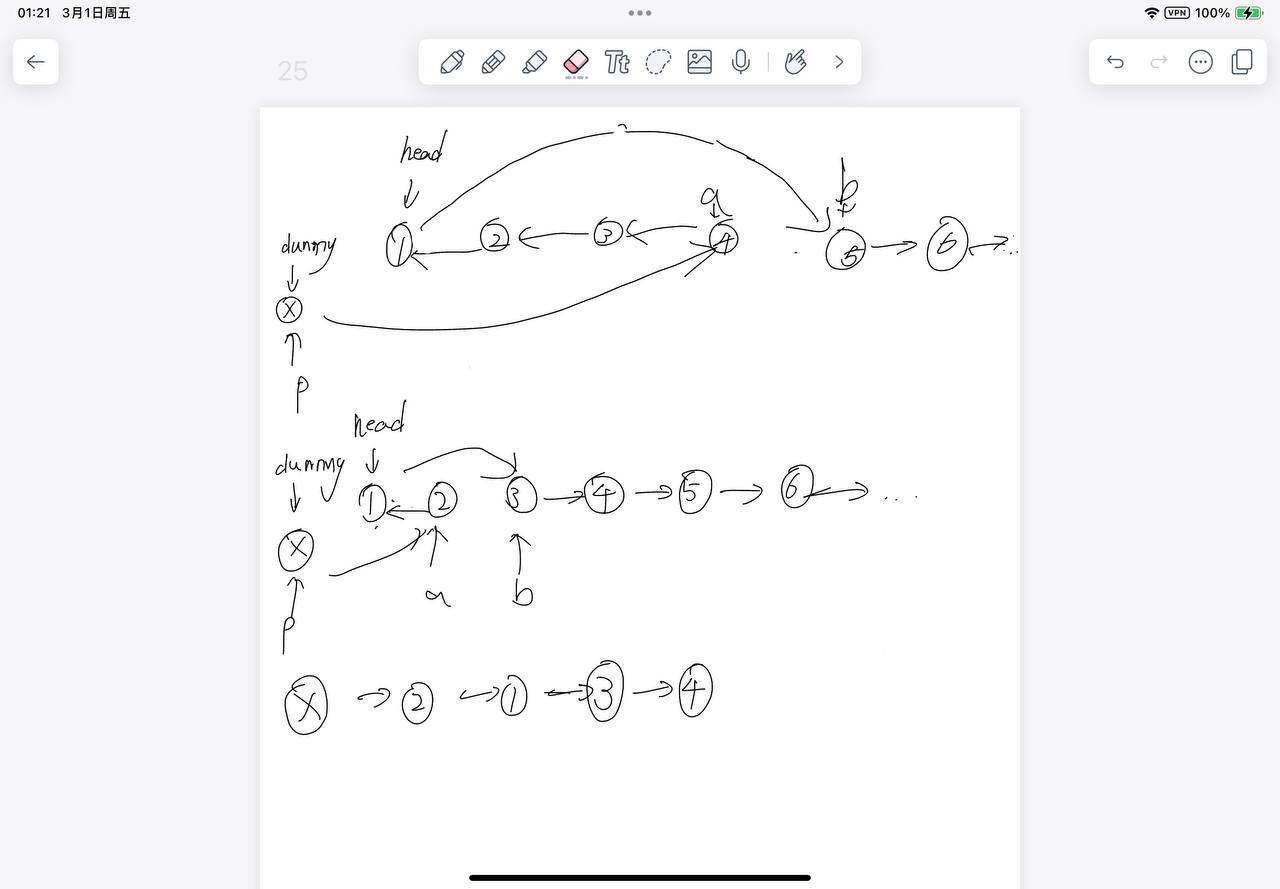 01:21 3月1日周五
VPN 100%
25
Tt
head
a
b
1 2 3 4 5 6 ...
dummy
X
p
head
dummy
1 2 3 4 5 6 ...
X
a b
p
X → 2 → 1 → 3 → 4